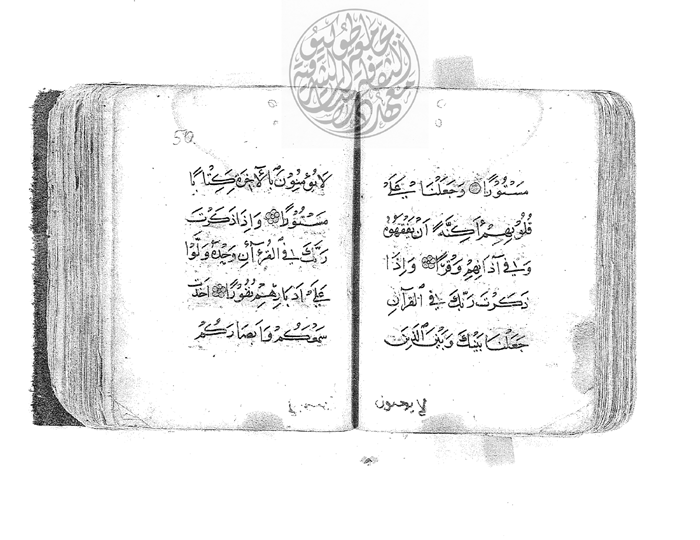 مَسْتُورًا وَجَعَلْنَا عَلَى
قُلُوبِهِمْ أَكِنَّةً أَنْ يَفْقَهُوهُ
وَفِي آذَانِهِمْ وَقْرًا وَإِذَا
ذَكَرْتَ رَبَّكَ فِي الْقُرْآنِ
جَعَلْنَا بَيْنَكَ وَبَيْنَ الَّذِينَ
لا يؤمنون
50
لَا يُؤْمِنُونَ بِالْآخِرَةِ حِجَابًا
مَسْتُورًا وَإِذَا ذَكَرْتَ
رَبَّكَ فِي الْقُرْآنِ وَحْدَهُ وَلَّوْا
عَلَى أَدْبَارِهِمْ نُفُورًا أَخَذَ
سَمْعَكُمْ وَأَبْصَارَكُمْ